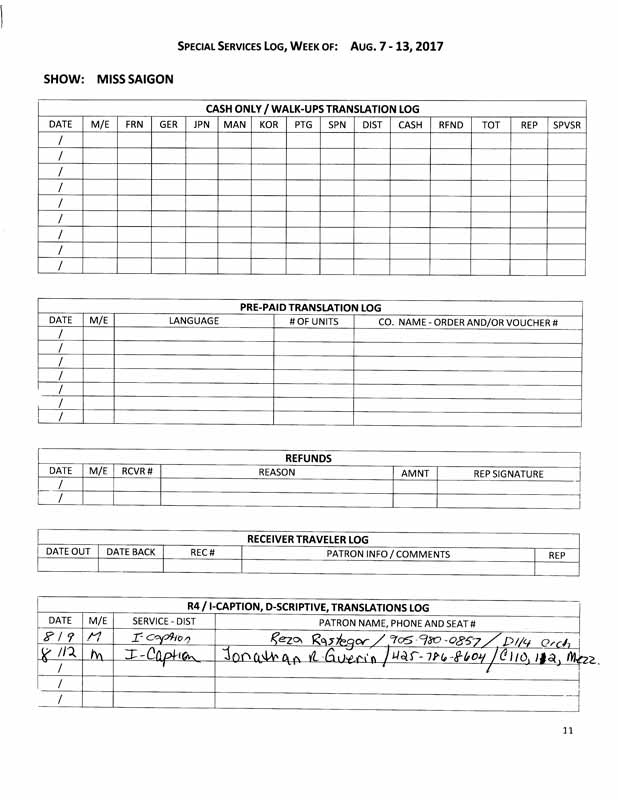 SPECIAL SERVICES LOG, WEEK OF: AUG. 7 - 13, 2017
SHOW: MISS SAIGON
CASH ONLY / WALK-UPS TRANSLATION LOG
DATE M/E FRN GER JPN MAN KOR PTG SPN DIST CASH RFND TOT REP SPVSR
/
/
/
/
/
/
/
/
/
PRE-PAID TRANSLATION LOG
DATE M/E LANGUAGE # OF UNITS CO. NAME - ORDER AND/OR VOUCHER #
/
/
/
/
/
/
/
REFUNDS
DATE M/E RCVR # REASON AMNT REP SIGNATURE
/
/
RECEIVER TRAVELER LOG
DATE OUT DATE BACK REC # PATRON INFO / COMMENTS REP
R4 / I-CAPTION, D-SCRIPTIVE, TRANSLATIONS LOG
DATE M/E SERVICE - DIST PATRON NAME, PHONE AND SEAT #
8/9 M I-caption Reza Rastegar / 905-980-0857 / D114 orch
8/12 M I-Caption Jonathan R Guerin / 425-786-8604 / C110, 112, Mezz.
/
/
11